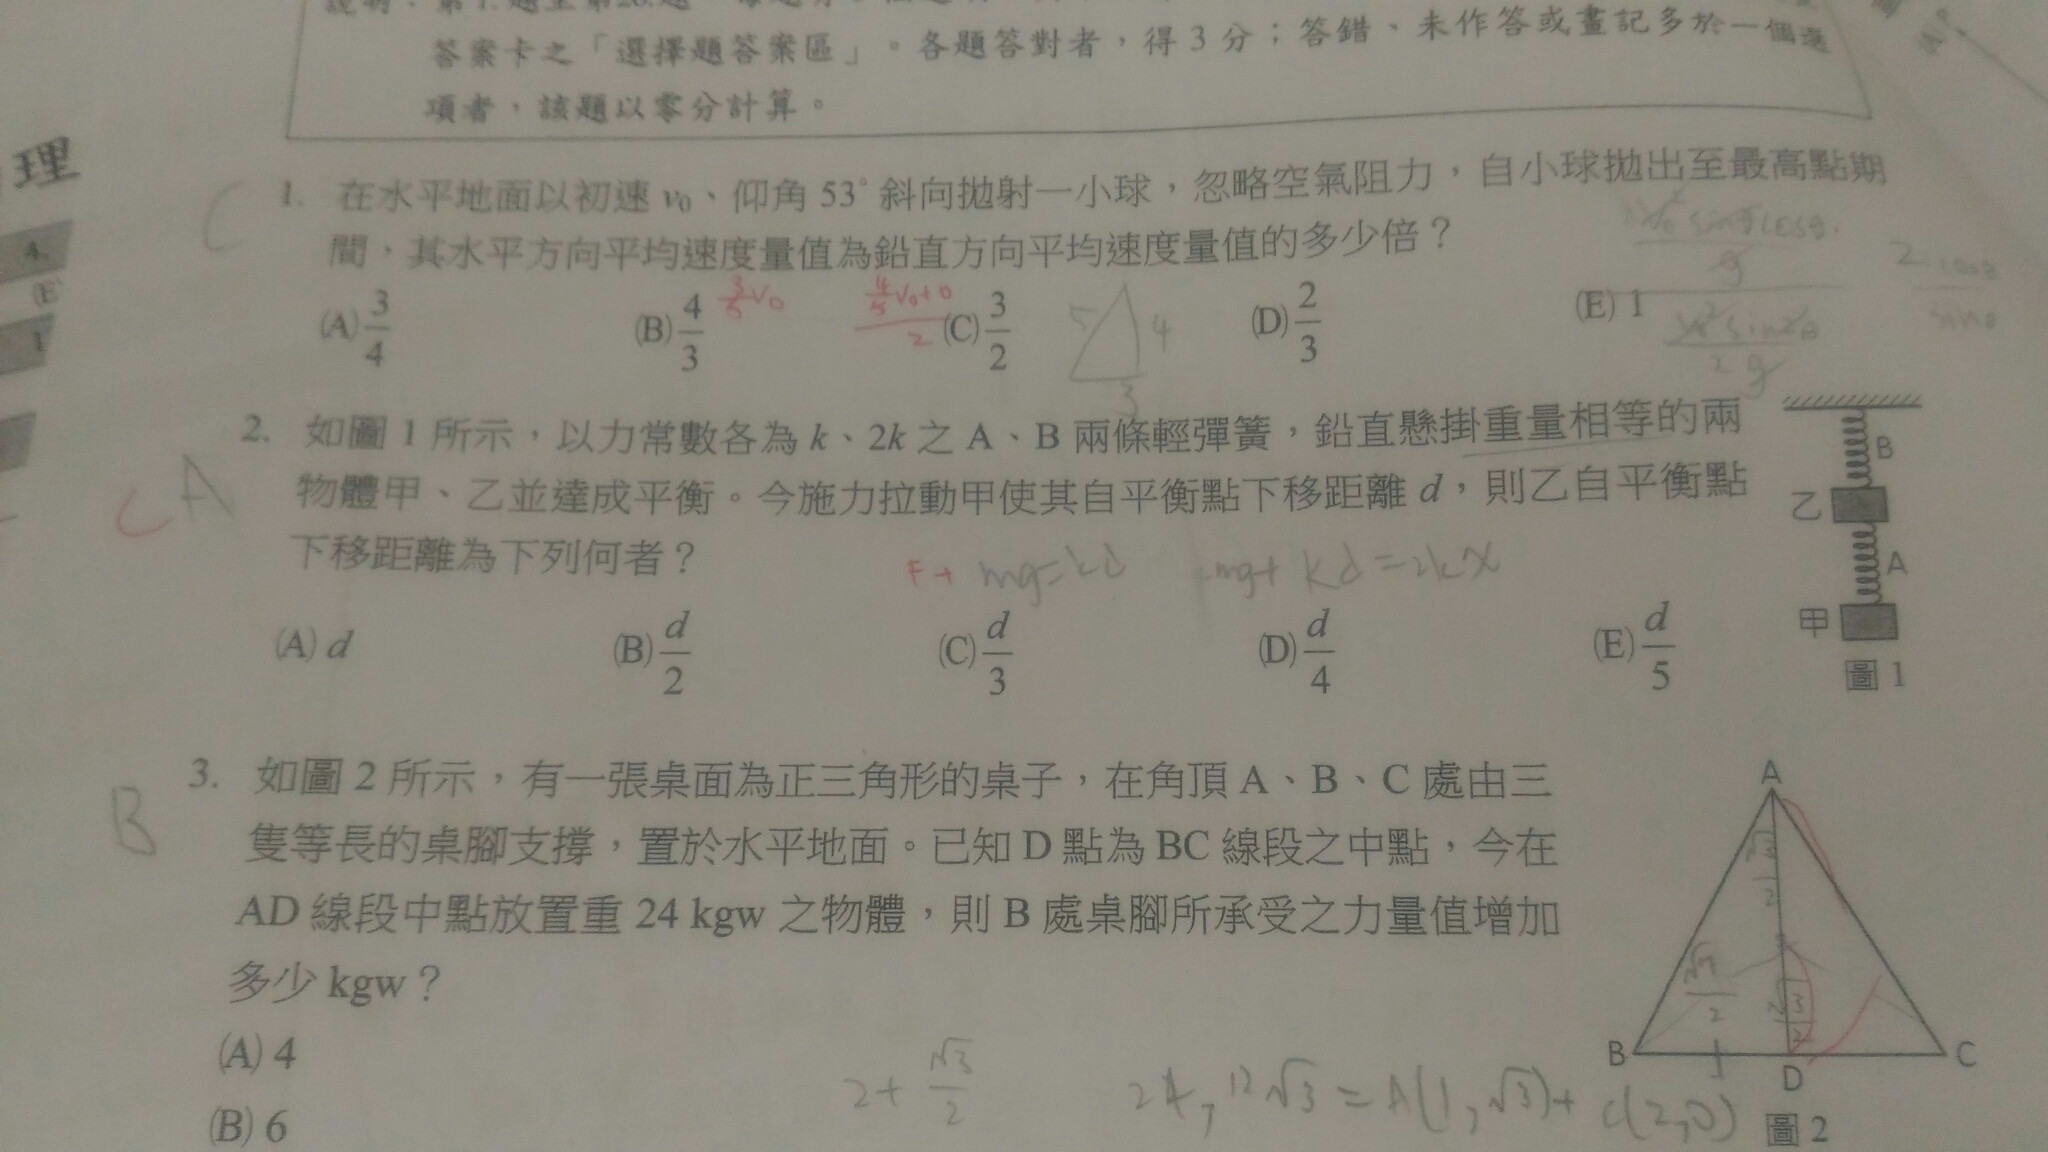 答案卡之「選擇題答案區」。各題答對者，得3分；答錯、未作答或畫記多於一個選
項者，該題以零分計算。
理
4.
(E
1
C
1. 在水平地面以初速 v₀、仰角 53° 斜向拋射一小球，忽略空氣阻力，自小球拋出至最高點期
間，其水平方向平均速度量值為鉛直方向平均速度量值的多少倍？
(A) 3/4 (B) 4/3 (C) 3/2 (D) 2/3 (E) 1
3/5 v₀
(4/5 v₀+0)/2
5 4 3
C A
2. 如圖 1 所示，以力常數各為 k、2k 之 A、B 兩條輕彈簧，鉛直懸掛重量相等的兩
物體甲、乙並達成平衡。今施力拉動甲使其自平衡點下移距離 d，則乙自平衡點
下移距離為下列何者？
F + mg=kd mg+ kd=2kx
(A) d (B) d/2 (C) d/3 (D) d/4 (E) d/5
B
乙
A
甲
圖 1
B
3. 如圖 2 所示，有一張桌面為正三角形的桌子，在角頂 A、B、C 處由三
隻等長的桌腳支撐，置於水平地面。已知 D 點為 BC 線段之中點，今在
AD 線段中點放置重 24 kgw 之物體，則 B 處桌腳所承受之力量值增加
多少 kgw？
(A) 4
(B) 6
2+ √3/2
24, 12√3 = A(1, √3)+ C(2,0)
A
B
D
C
圖 2